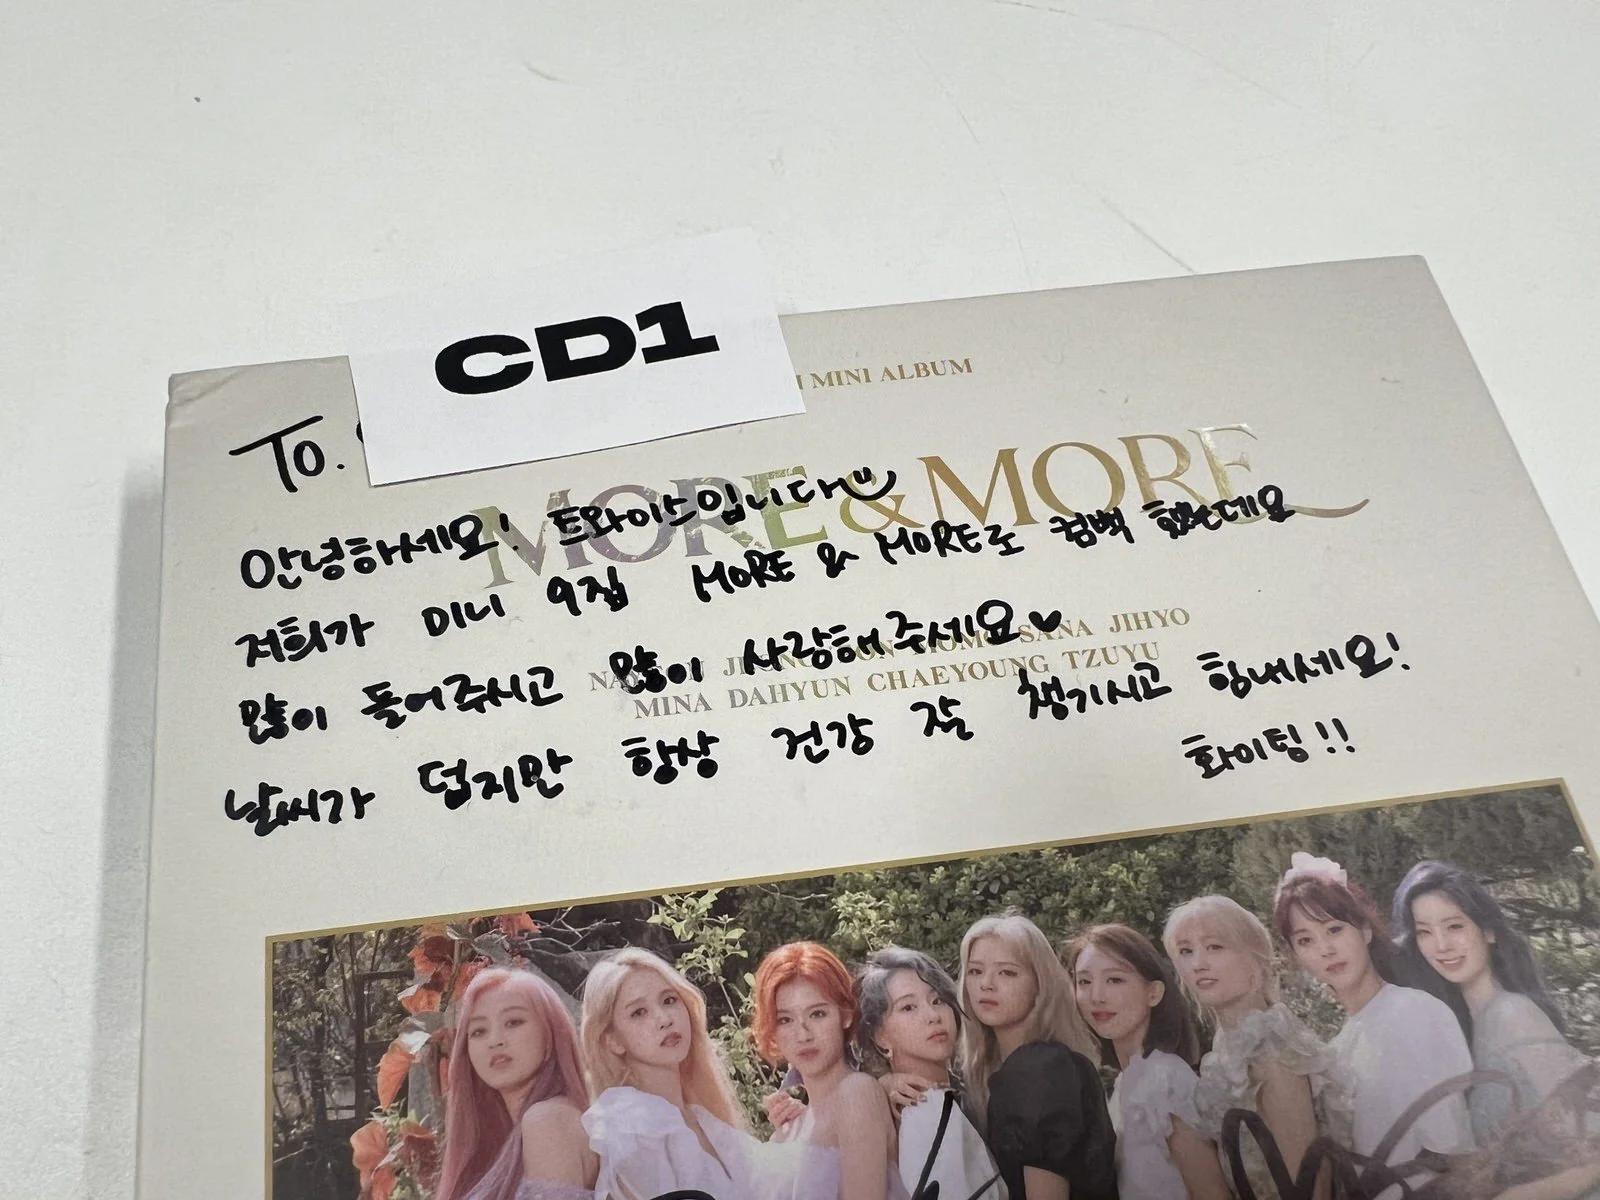 CD1
MINI ALBUM
To.
MORE & MORE
안녕하세요! 트와이스입니다
저희가 미니 9집 MORE & MORE로 컴백 했는데요
많이 들어주시고 많이 사랑해주세요♥
SANA JIHYO
MINA DAHYUN CHAEYOUNG TZUYU
날씨가 덥지만 항상 건강 잘 챙기시고 힘내세요!
화이팅!!